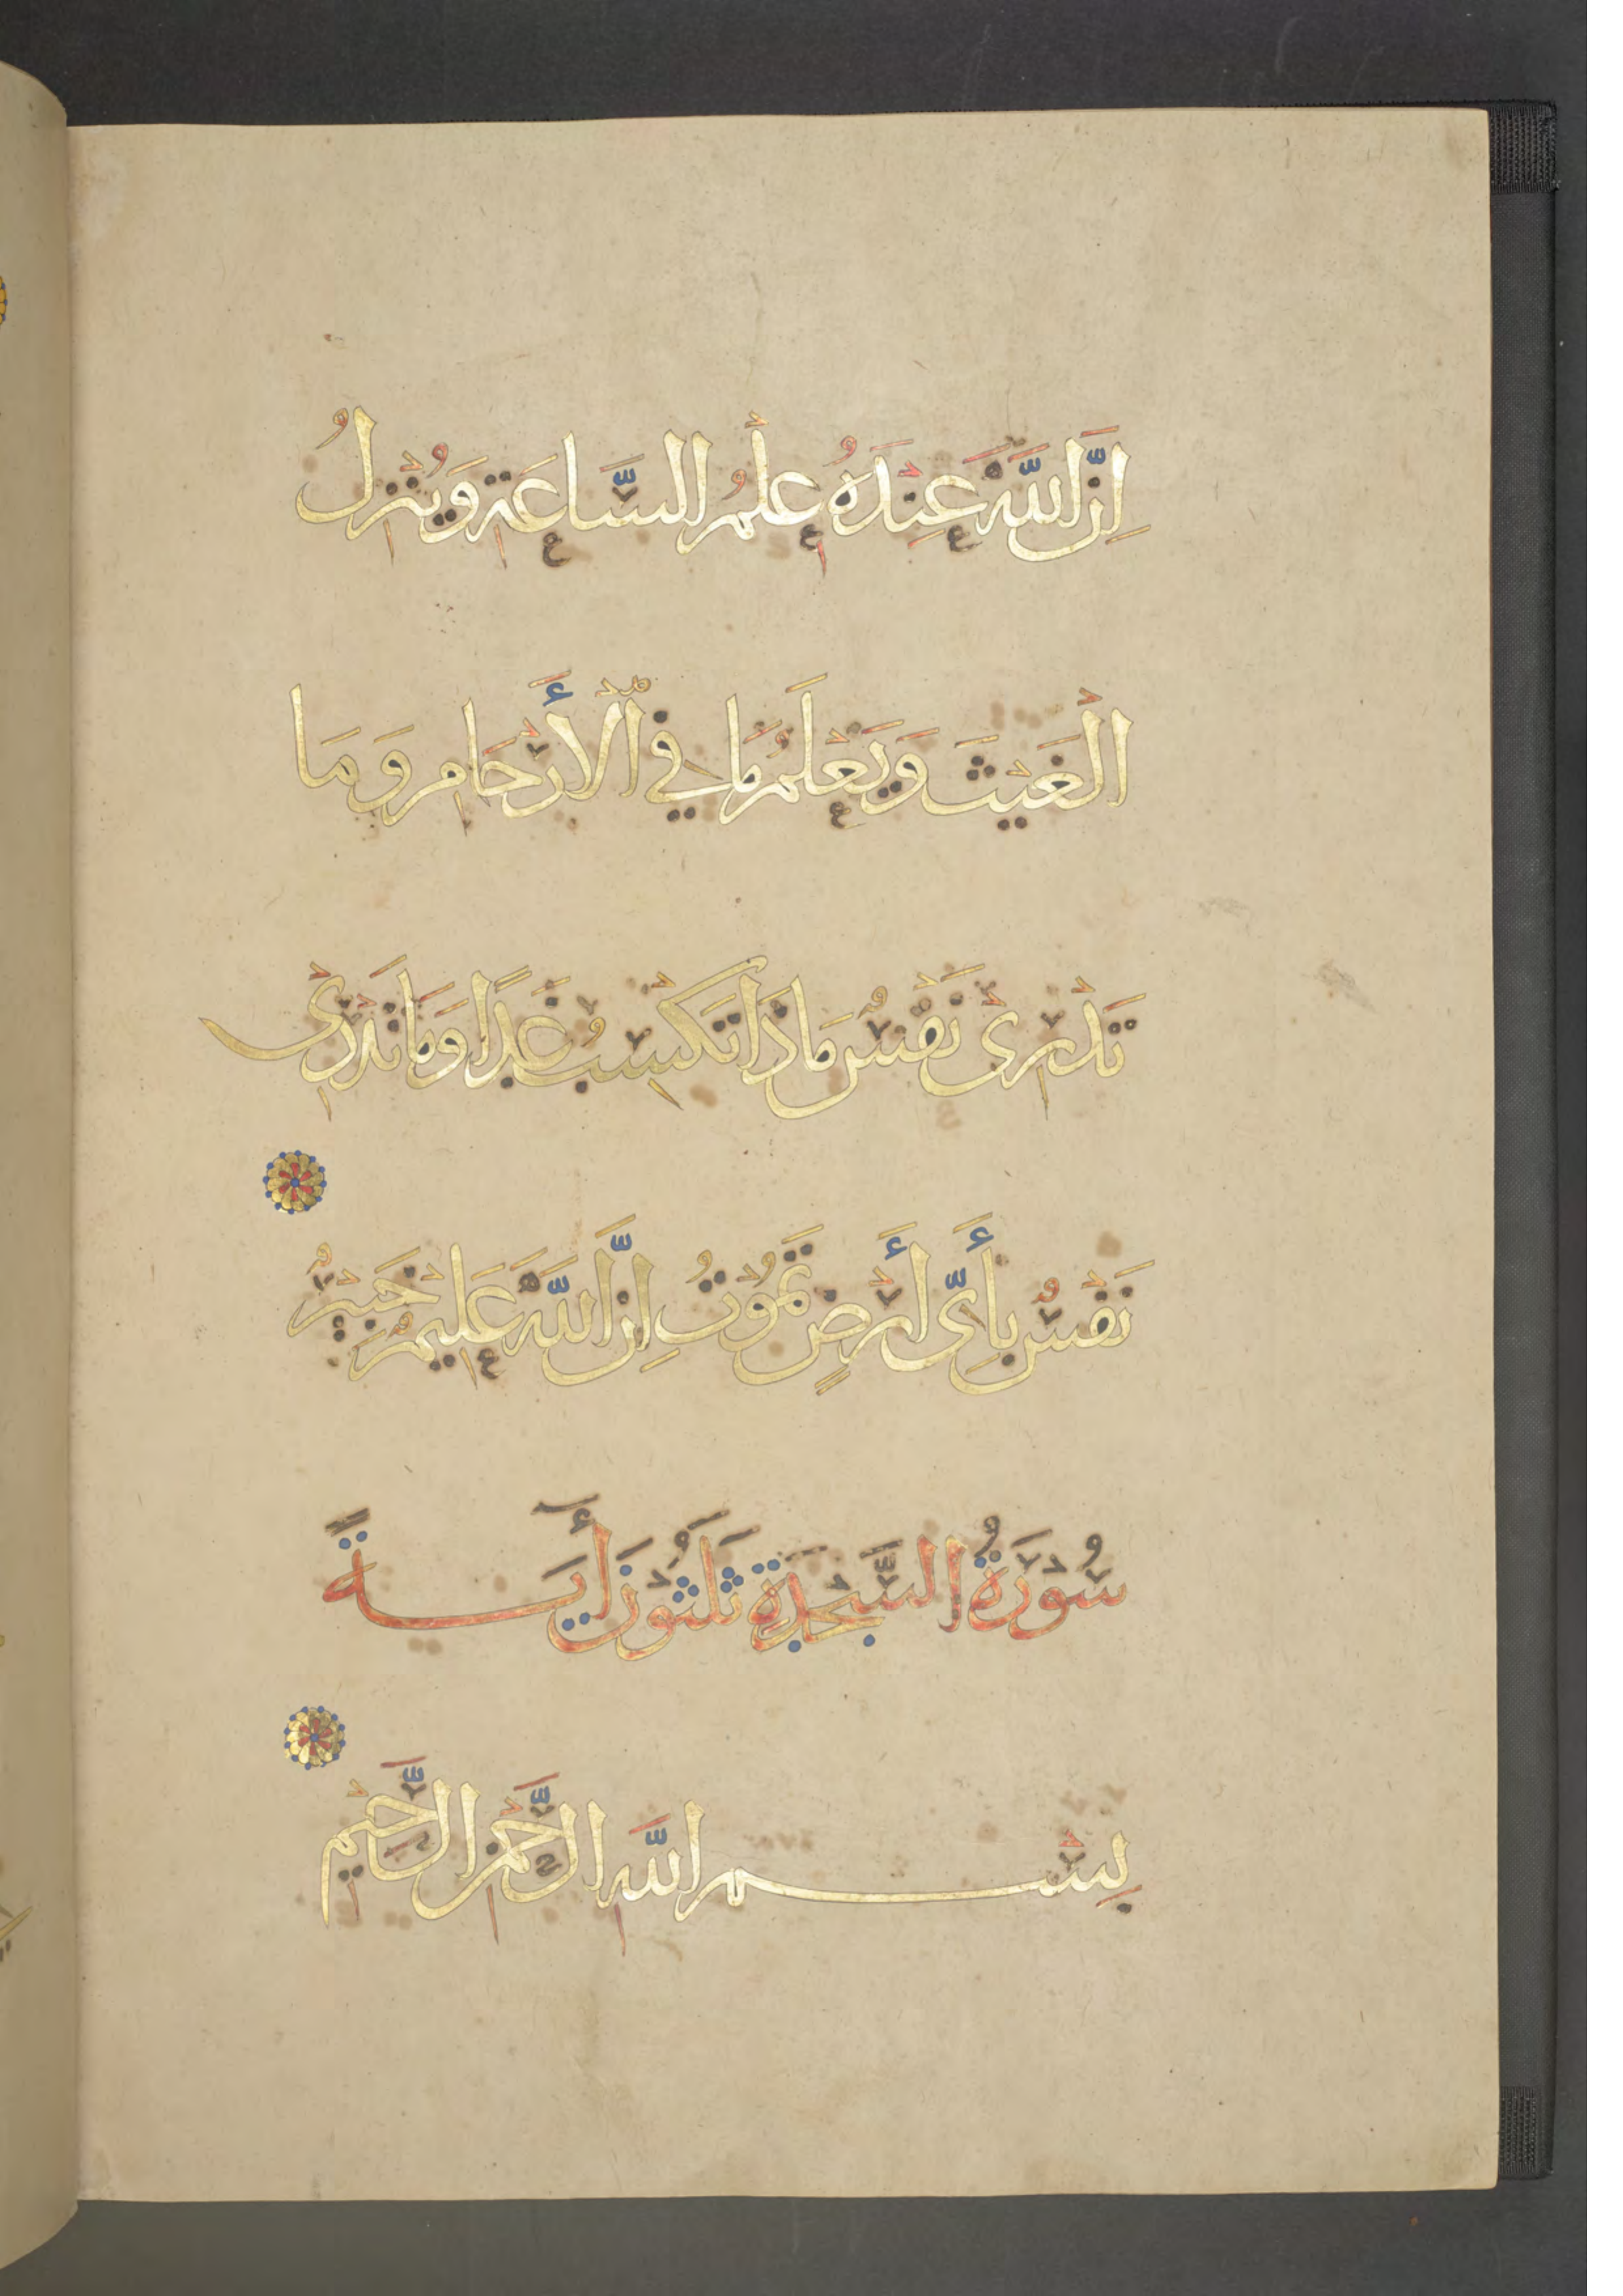 اِنَّ اللّٰهَ عِنْدَهُ عِلْمُ السَّاعَةِ وَيُنْزِلُ
الْغَيْثَ وَيَعْلَمُ مَا فِي ٱلْأَرْحَامِ وَمَا
تَدْرِىْ نَفْسٌ مَاذَا تَكْسِبُ غَدًا وَمَا تَدْرِىْ
نَفْسٌ بِأَىِّ أَرْضٍ تَمُوْتُ اِنَّ اللّٰهَ عَلِيْمٌ خَبِيْرٌ
سُوْرَةُ السَّجْدَةِ ثَلٰثُوْنَ أٓيَةً
بِسْمِ اللّٰهِ الرَّحْمٰنِ الرَّحِيْمِ